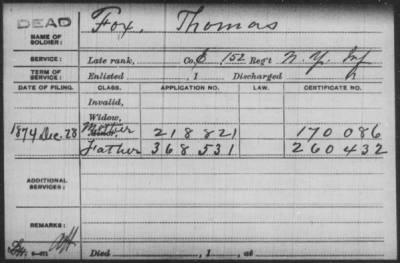 DEAD
NAME OF SOLDIER: Fox, Thomas
SERVICE: Late rank, Co. 152 Reg't N. Y. Inf
TERM OF SERVICE: Enlisted , 1 Discharged , 1
DATE OF FILING. CLASS. APPLICATION NO. LAW. CERTIFICATE NO.
Invalid,
Widow,
1874 Dec. 28 Mother 218821 170086
Father 368531 260432
ADDITIONAL SERVICES:
REMARKS:
Died , 1 , at